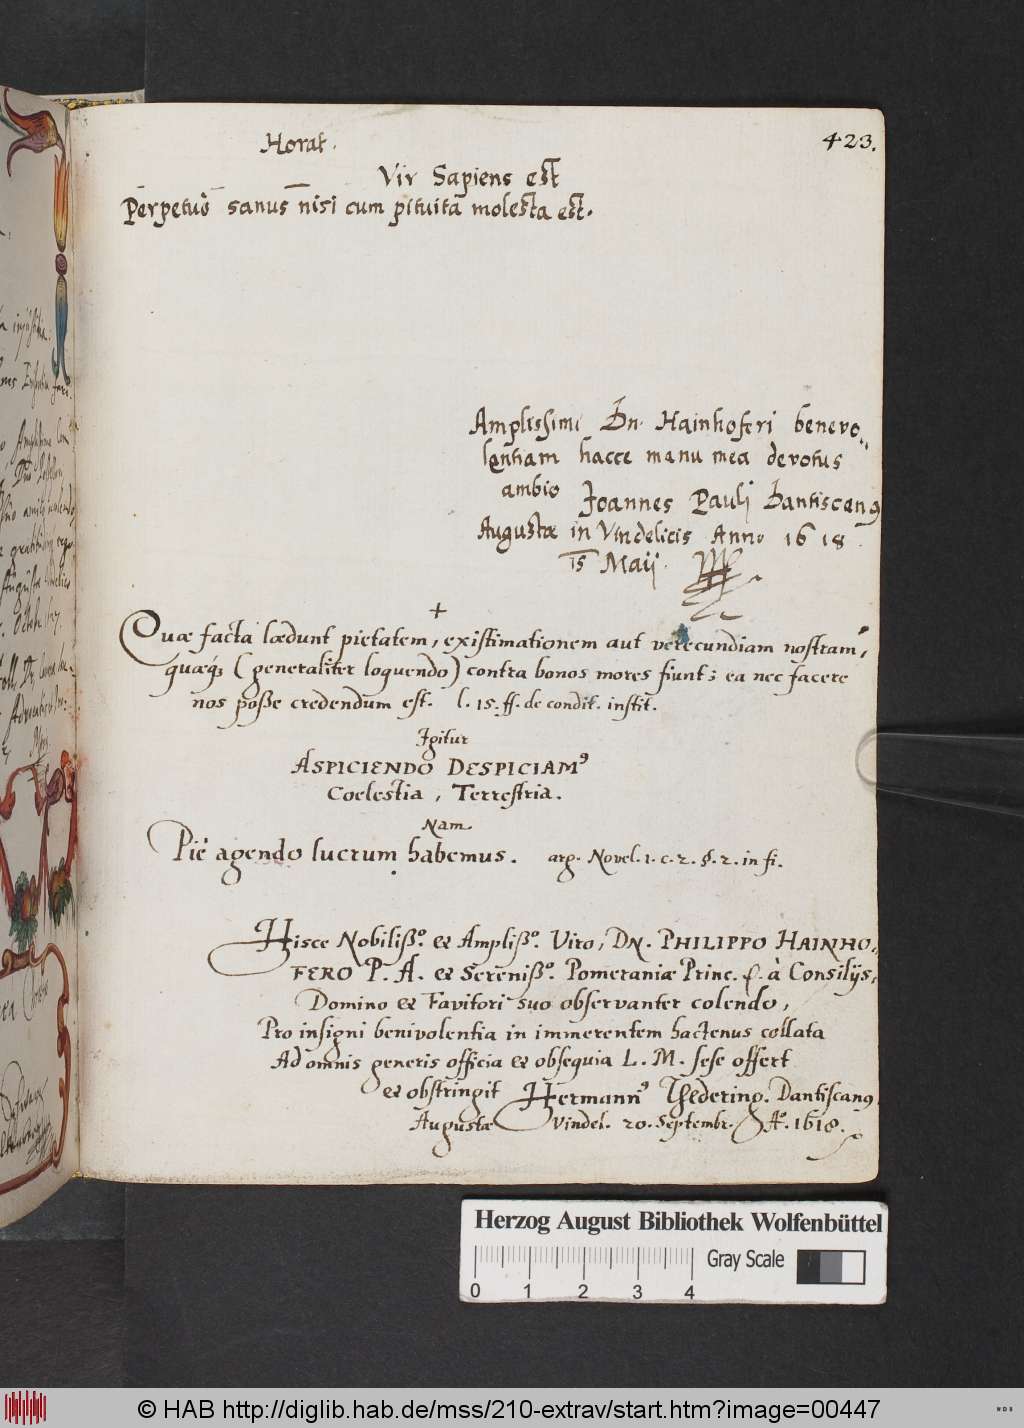 423.
Horat.
Vir Sapiens est
Perpetuò sanus nisi cum pituita molesta est.
Amplissimi Dn. Hainhoferi benevo„
lentiam hacce manu mea devotus
ambio Joannes Pauli Dantiscanꝰ
Augustæ in Vindelicis Anno 1618
15 Maij.
+
Quæ facta lædunt pietatem, existimationem aut verecundiam nostram,
quæqꝫ (generaliter loquendo) contra bonos mores fiunt; ea nec facere
nos posse credendum est. l. 15. ff. de condit. instit.
Igitur
ASPICIENDO DESPICIAMꝰ
Coelestia, Terrestria.
Nam
Piè agendo lucrum habemus. arg. Novel. 1. c. 2. §. 2. in fi.
Hisce Nobiliß.º et Ampliß.º Viro, DN. PHILIPPO HAINHO„
FERO P. A. et Sereniß.º Pomeraniæ Princ. à Consilijs,
Domino et Favitori suo observanter colendo,
Pro insigni benivolentia in immerentem hactenus collata
Ad omnis generis officia et obsequia L. M. sese offert
et obstringit Hermannꝰ Thedering. Dantiscanꝰ
Augustæ Vindel. 20. Septembr. Aº. 1618.
Herzog August Bibliothek Wolfenbüttel
Gray Scale
0 1 2 3 4
© HAB http://diglib.hab.de/mss/210-extrav/start.htm?image=00447